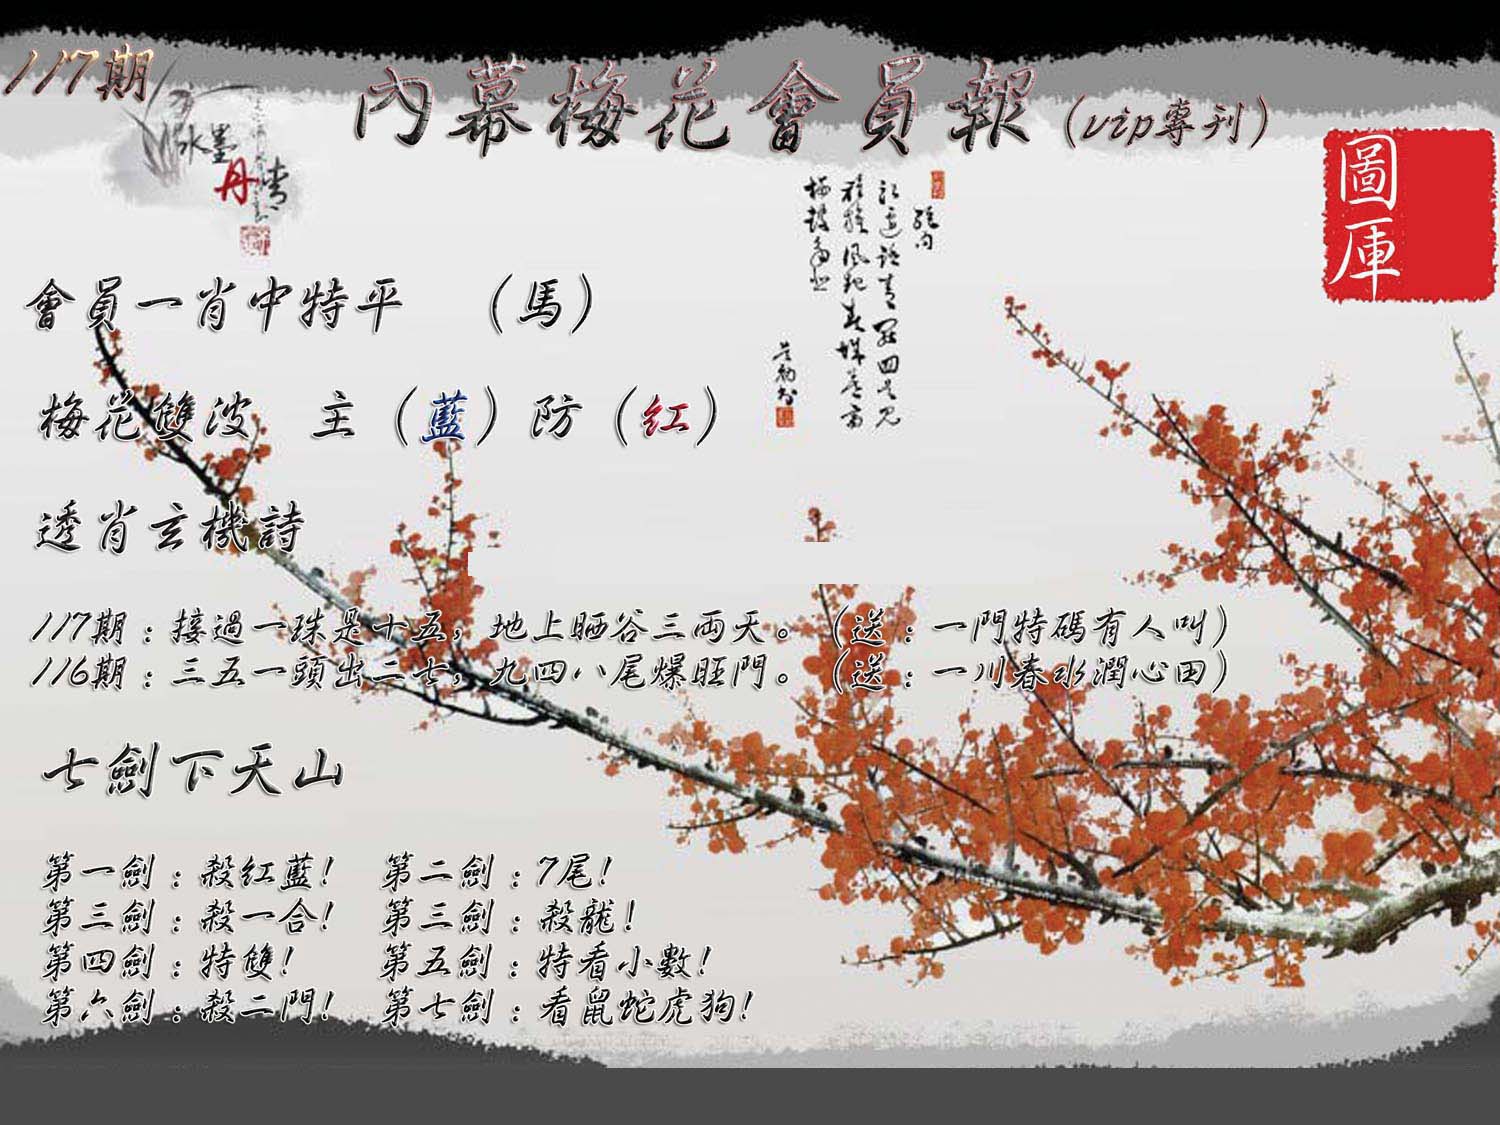 117期
內幕梅花會員報（vip專刊）
水墨
丹青
圖庫
會員一肖中特平 （馬）
梅花雙波 主（藍）防（紅）
透肖玄機詩
117期：接過一珠是十五，地上晒谷三兩天。（送：一門特碼有人叫）
116期：三五一頭出二七，九四八尾爆旺門。（送：一川春水潤心田）
七劍下天山
第一劍：殺紅藍！ 第二劍：7尾！
第三劍：殺一合！ 第三劍：殺龍！
第四劍：特雙！ 第五劍：特看小數！
第六劍：殺二門！ 第七劍：看鼠蛇虎狗！